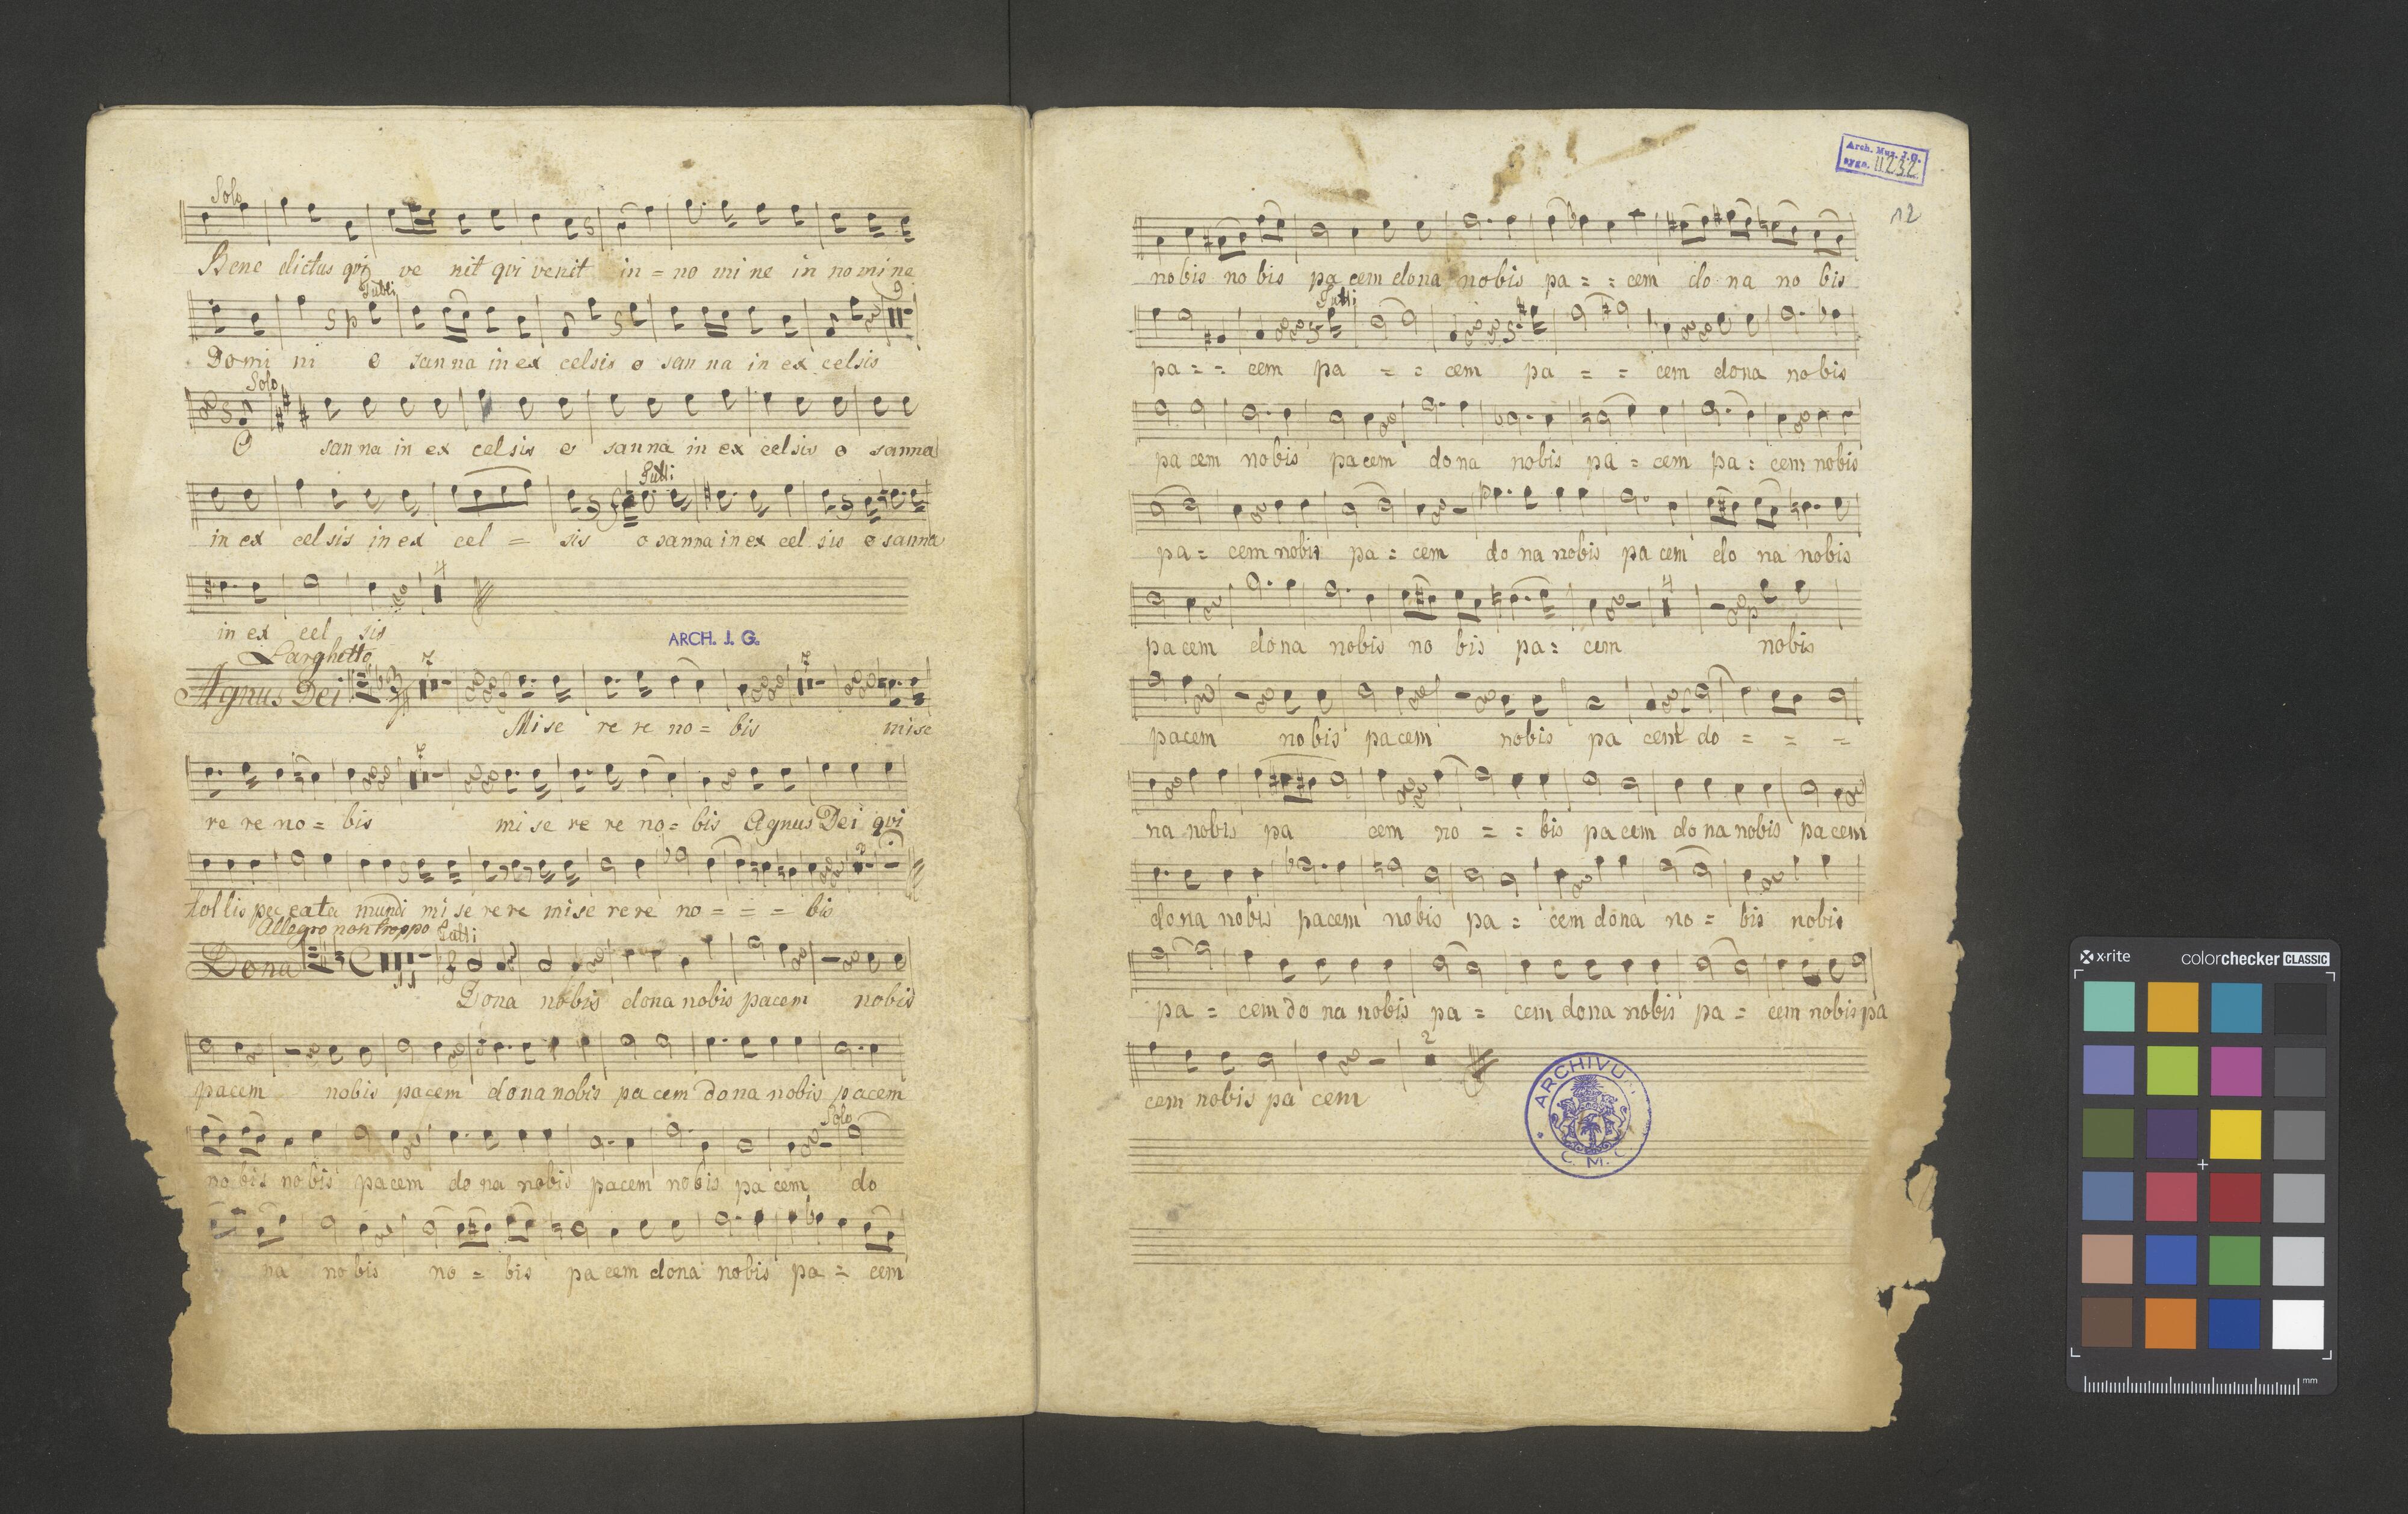 Solo
Bene dictus qvi ve nit qvi venit in = no mi ne in no mi ne
Tutti
9
Domi ni o san na in ex celsis o san na in ex celsis
Solo
O san na in ex cel sis o san na in ex cel sis o sanna
Tutti
in ex cel sis in ex cel = sis o sanna in ex cel sis o sanna
4
in ex cel sis
ARCH. J. G.
Larghetto
Agnus Dei
7 7
Mise re re no = bis mise
7
re re no = bis mi se re re no = bis Agnus Dei qvi
2
tollis pec cata mundi mi se re re mise re re no = = = bis
Allegro non troppo Tutti
Dona
Dona nobis dona nobis pacem nobis
pacem nobis pacem dona nobis pa cem dona nobis pacem
Solo
no bis no bis pacem do na nobis pacem nobis pa cem do
na no bis no = bis pa cem dona nobis pa = cem
Arch. Muz. J. G.
sygn. II 232
12
nobis no bis pa cem dona nobis pa = = cem do na no bis
Tutti
pa = = cem pa = = cem pa = = cem dona nobis
pa cem nobis pacem dona nobis pa = cem pa = cem nobis
pa = cem nobis pa = cem do na nobis pa cem do na nobis
4
pacem dona nobis no bis pa = cem nobis
pacem nobis pacem nobis pa cem do = = =
na nobis pa cem no = = bis pa cem do na nobis pa cem
dona nobis pacem nobis pa = cem dona no = bis nobis
pa = cem do na nobis pa = cem dona nobis pa = cem nobis pa
2
cem nobis pa cem
ARCHIVUM
C. M. C.
x-rite colorchecker CLASSIC
mm